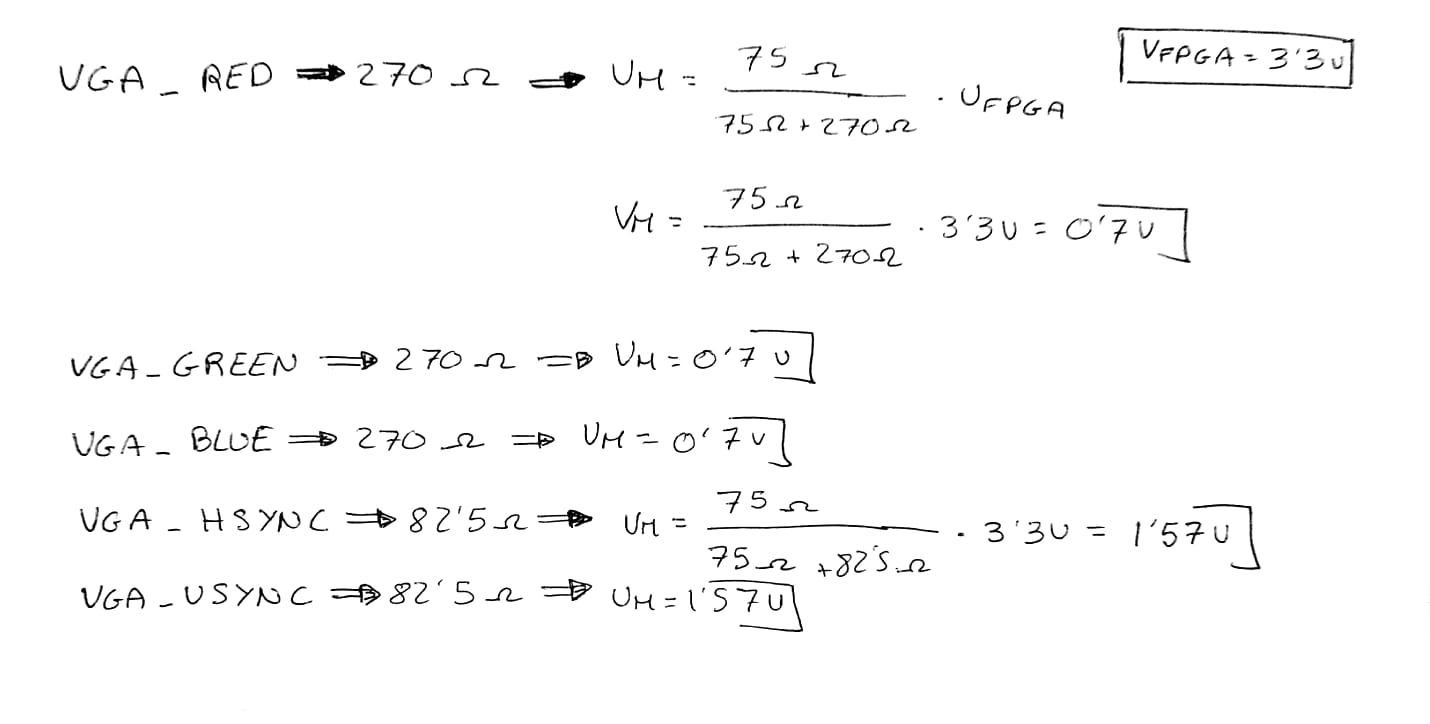 VFPGA = 3'3v
VGA_RED ⇒ 270 Ω ⇒ VM = 75 Ω / 75Ω + 270Ω · VFPGA
VM = 75 Ω / 75Ω + 270Ω · 3'3V = 0'7V
VGA_GREEN ⇒ 270 Ω ⇒ VM = 0'7 V
VGA_BLUE ⇒ 270 Ω ⇒ VM = 0'7V
VGA_HSYNC ⇒ 82'5 Ω ⇒ VM = 75 Ω / 75 Ω + 82'5 Ω · 3'3V = 1'57V
VGA_VSYNC ⇒ 82'5 Ω ⇒ VM = 1'57V